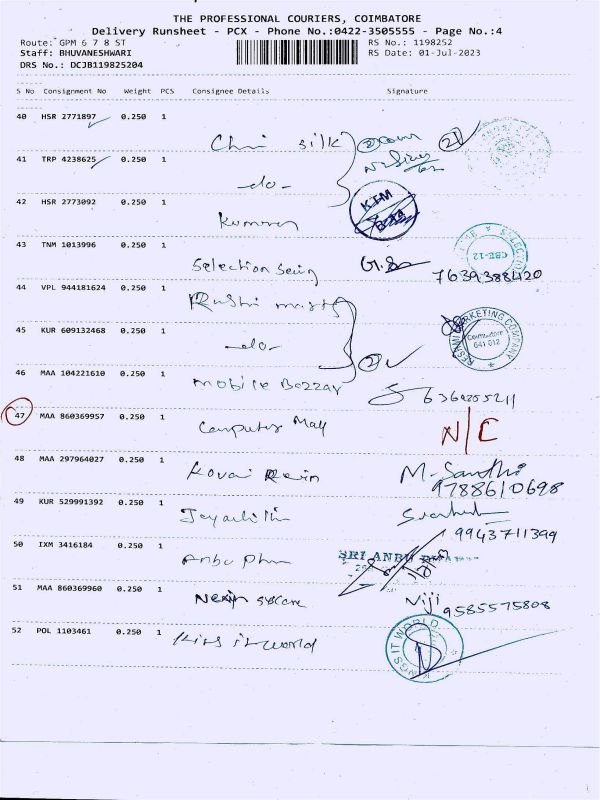 THE PROFESSIONAL COURIERS, COIMBATORE
Delivery Runsheet - PCX - Phone No.:0422-3505555 - Page No.:4
Route: GPM 6 7 8 ST
RS No.: 1198252
Staff: BHUVANESHWARI
RS Date: 01-Jul-2023
DRS No.: DCJB119825204
S No Consignment No Weight PCS Consignee Details Signature
40 HSR 2771897 0.250 1
silk
41 TRP 4238625 0.250 1
-do-
42 HSR 2773092 0.250 1
KFM
43 TNM 1013996 0.250 1
CBE-12
Selection
7639388420
44 VPL 944181624 0.250 1
45 KUR 609132468 0.250 1
MARKETING COMPANY
Coimbatore
641 012
-do-
46 MAA 104221610 0.250 1
mobile Bazzar
6369255211
47 MAA 860369957 0.250 1
Computer Mall N/C
48 MAA 297964027 0.250 1
Kovai M. Santhi
9788610698
49 KUR 529991392 0.250 1
9943711399
50 IXM 3416184 0.250 1
SRI ANBU
Anbu
51 MAA 860369960 0.250 1
Viji 9585575808
52 POL 1103461 0.250 1
Kings it world
KINGS IT WORLD